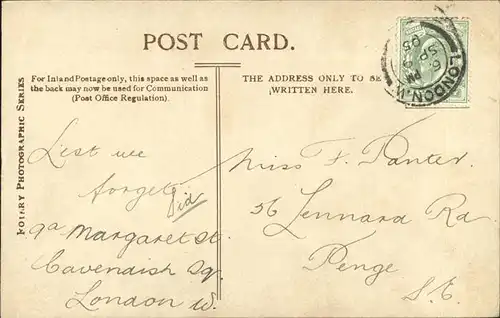 POST CARD.
For Inland Postage only, this space as well as
the back may now be used for Communication
(Post Office Regulation).
THE ADDRESS ONLY TO BE
WRITTEN HERE.
ROTARY PHOTOGRAPHIC SERIES
LONDON. W.
6 PM
SP
05
Lest we
forget
9a Margaret St.
Cavendish Sq.
London W.
Miss F. Panter.
56 Lennard Rd
Penge
S.E.